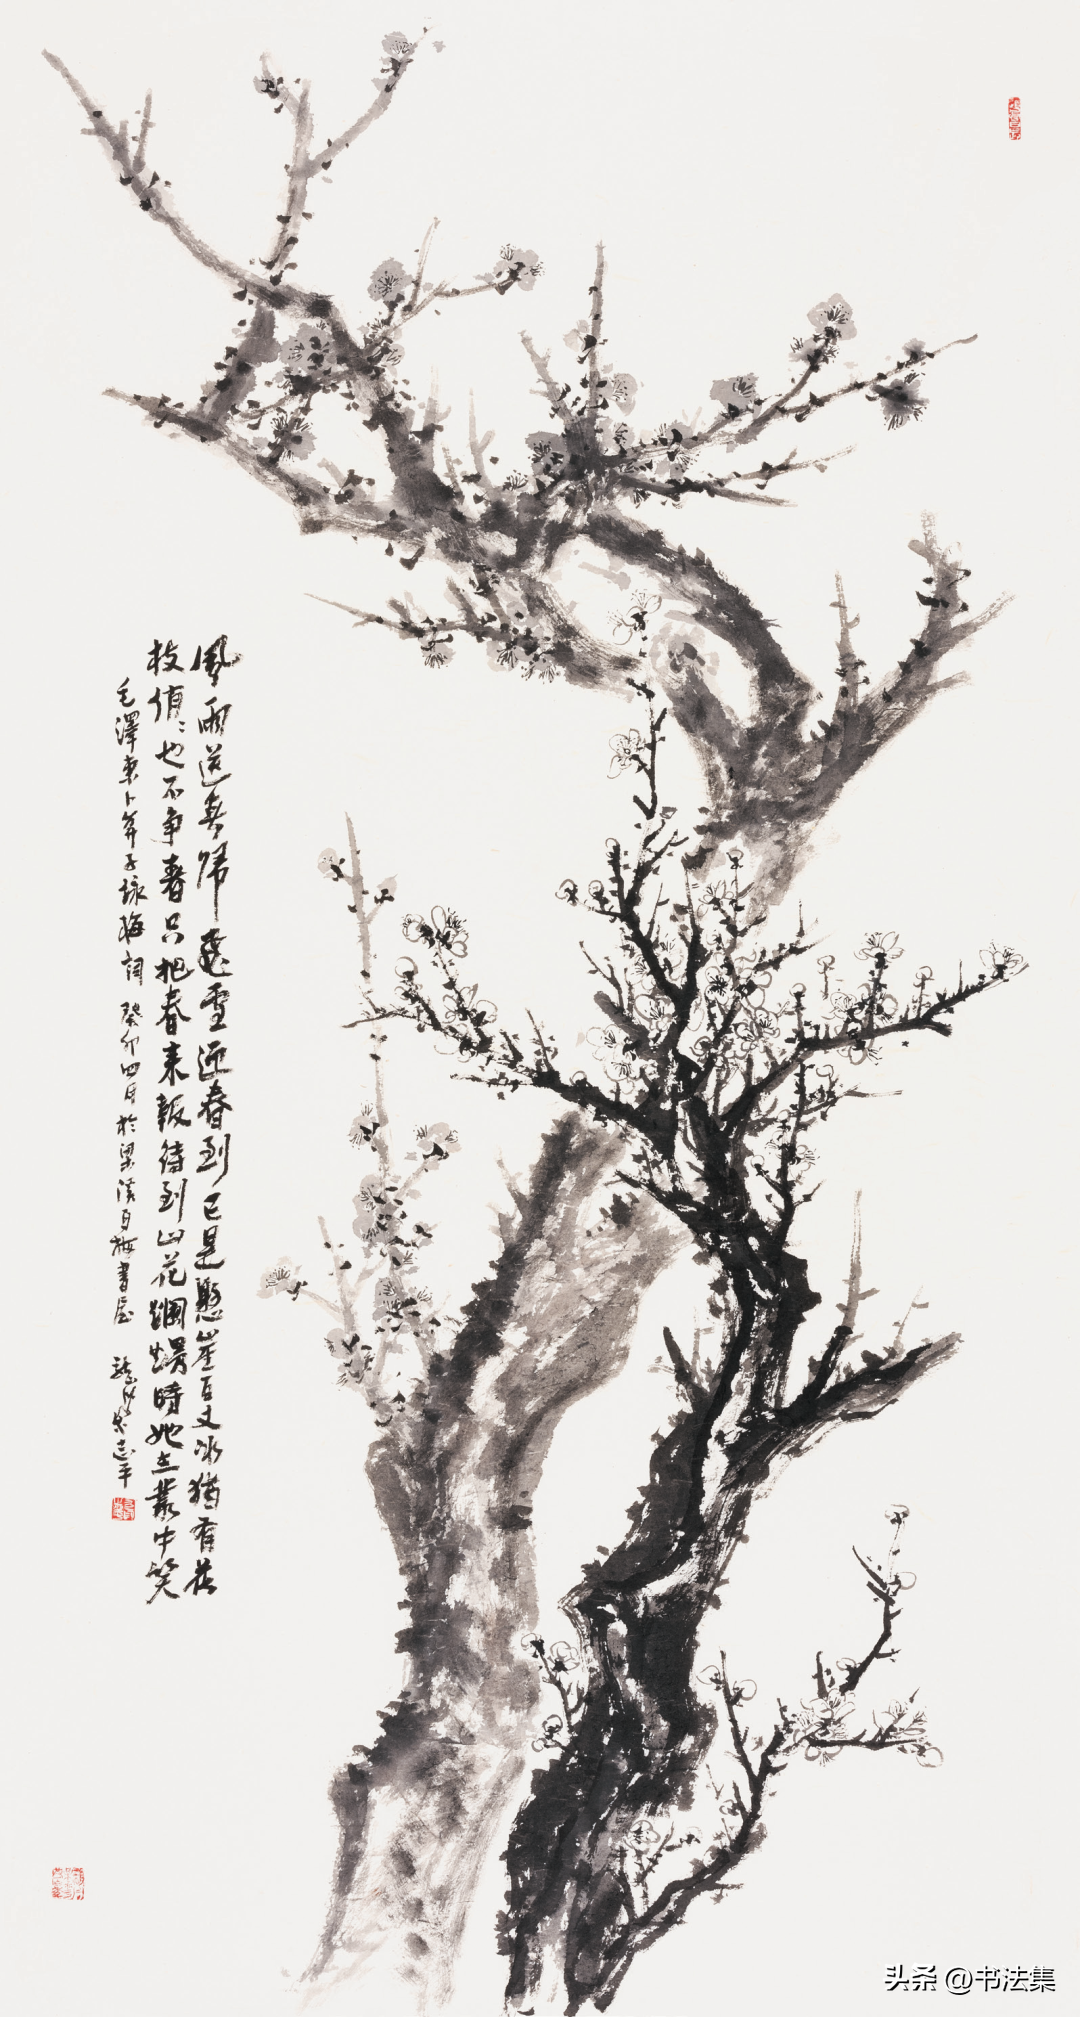 風雨送春歸飛雪迎春到已是懸崖百丈冰猶有花
枝俏〻也不争春只把春来報待到山花爛熳時她在叢中笑
毛澤東卜算子詠梅詞 癸卯四月於梁溪百梅書屋 志平
头条 @书法集